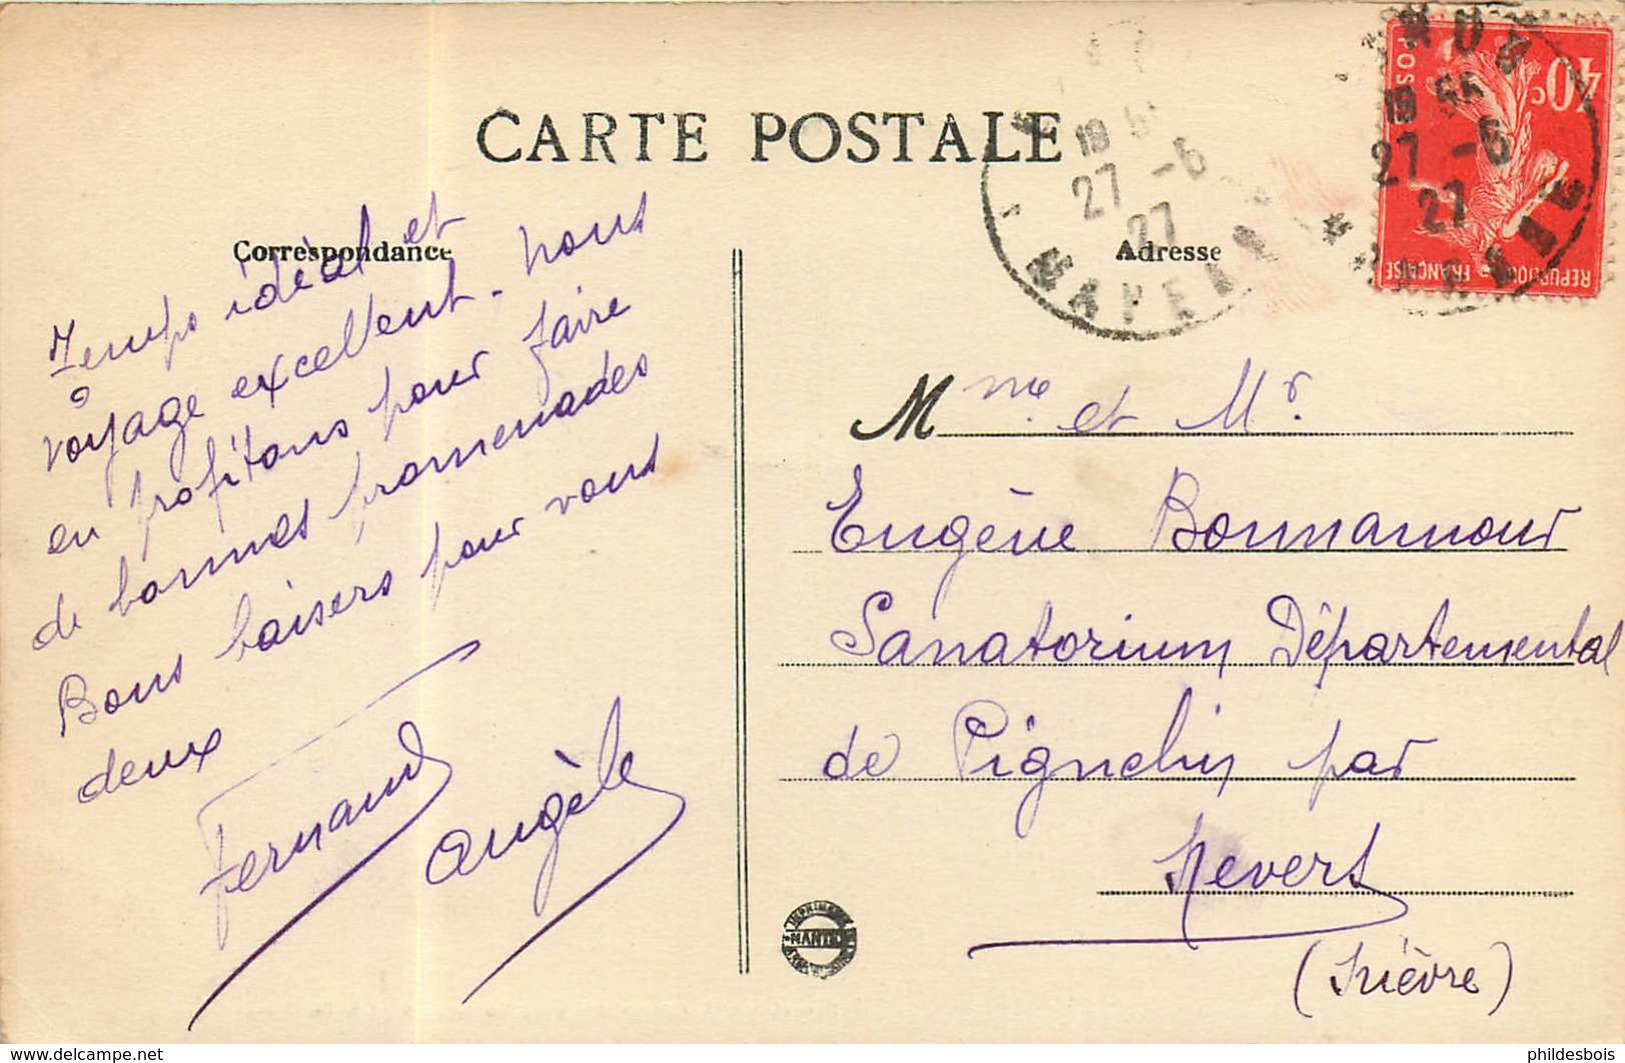 CARTE POSTALE
Correspondance
Temps idéal et
voyage excellent. Nous
en profitons pour faire
de bonnes promenades
Bons baisers pour vous
deux
Fernand
Angèle
Adresse
19 5
27 - 6
27
MAYENNE
19 55
27 - 6
27
MAYENNE
40c
POSTES
REPUBLIQUE FRANÇAISE
Mme et Mr.
Eugène Bonnamour
Sanatorium Départemental
de Pignelin par
Nevers
(Nièvre)
NANTES
delcampe.net
phildesbois